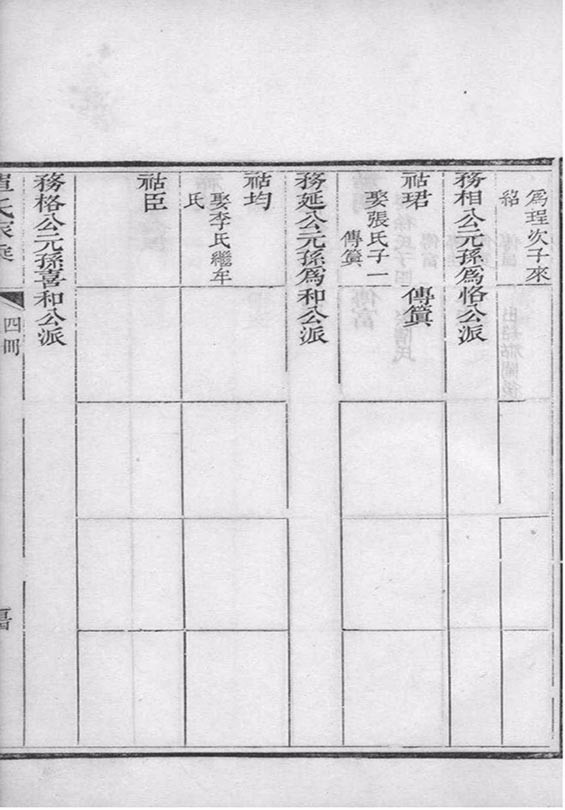 爲珵次子來
紹
務相公元孫爲恪公派
祜珺
傳簨
娶張氏子一
傳簨
務延公元孫爲和公派
祜均
娶李氏繼年
氏
祜臣
務格公元孫喜和公派
四冊